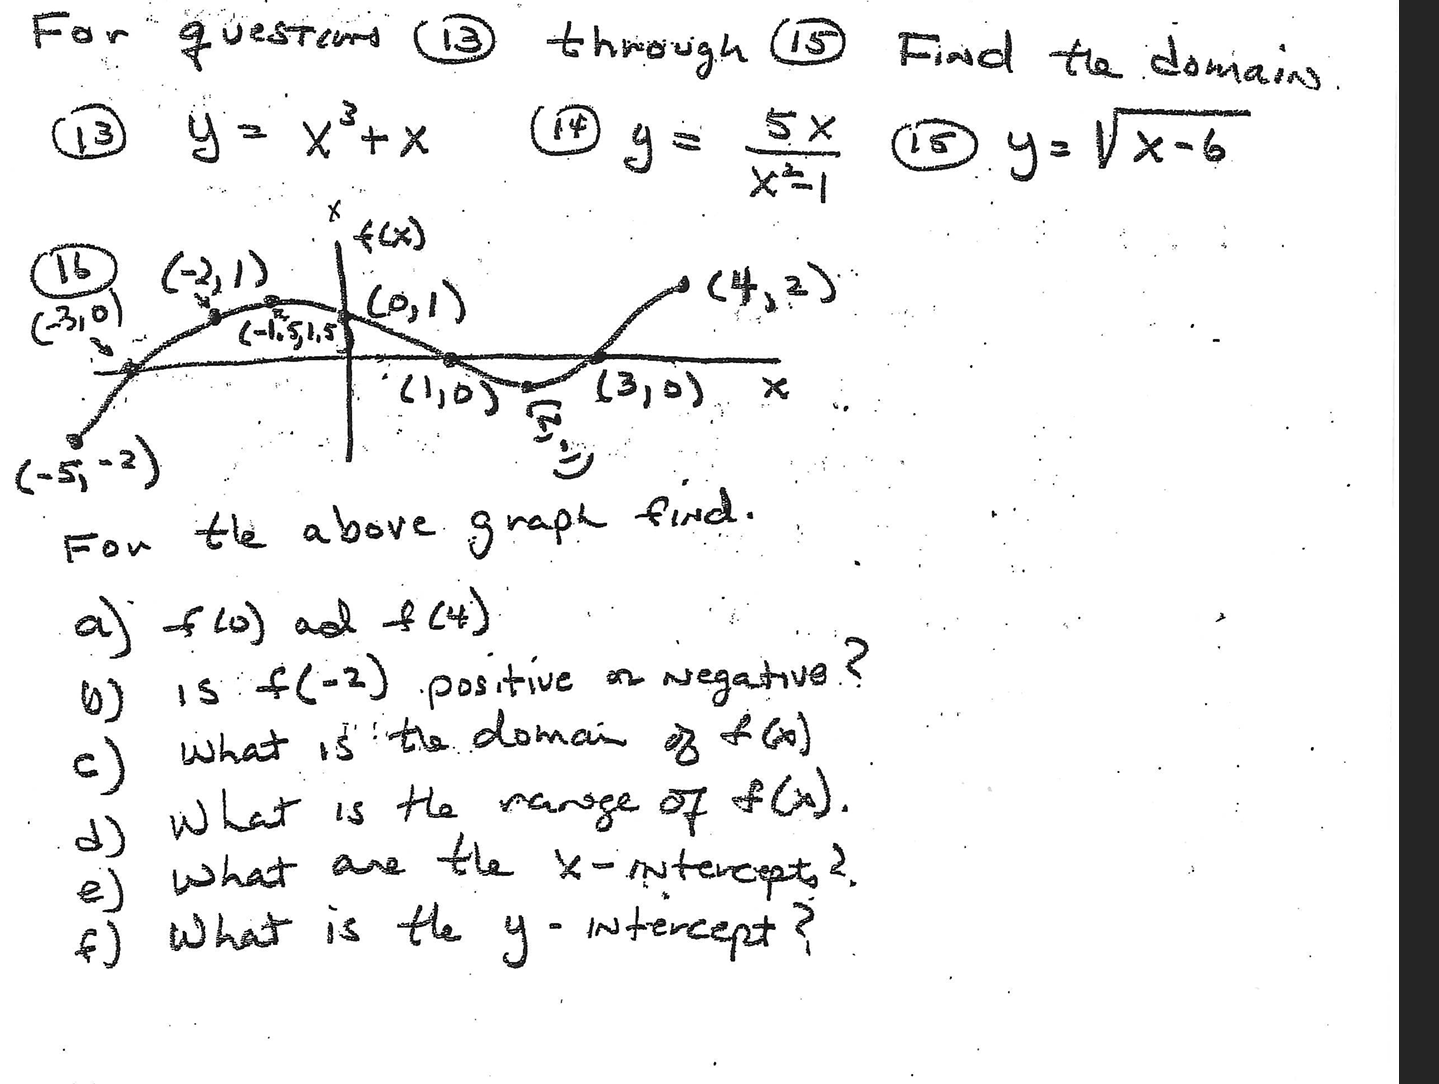 For questions (13) through (15) Find the domain.
(13) y = x³ + x (14) y = 5x / x²-1 (15) y = √x-6
x
f(x)
(16) (-2, 1)
(-3, 0) (0, 1) (4, 2)
(-1.5, 1.5
(1, 0) (3, 0) x
(2, -1)
(-5, -2)
For the above graph find.
a) f(0) ad f(4)
b) is f(-2) positive or negative?
c) What is the domain of f(x)
d) What is the range of f(x).
e) What are the x-intercepts?.
f) What is the y-intercept?